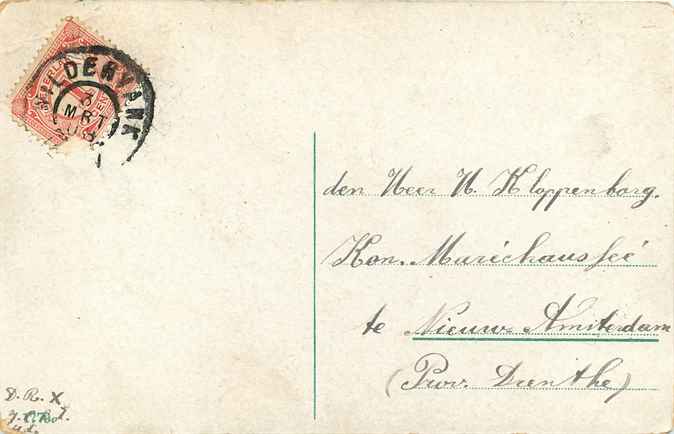 WILDERVANK
3
MRT
08
den Heer H. Kloppenborg.
Kon. Maréchaussée
te Nieuw Amsterdam
(Prov. Drenthe)
D. R. X